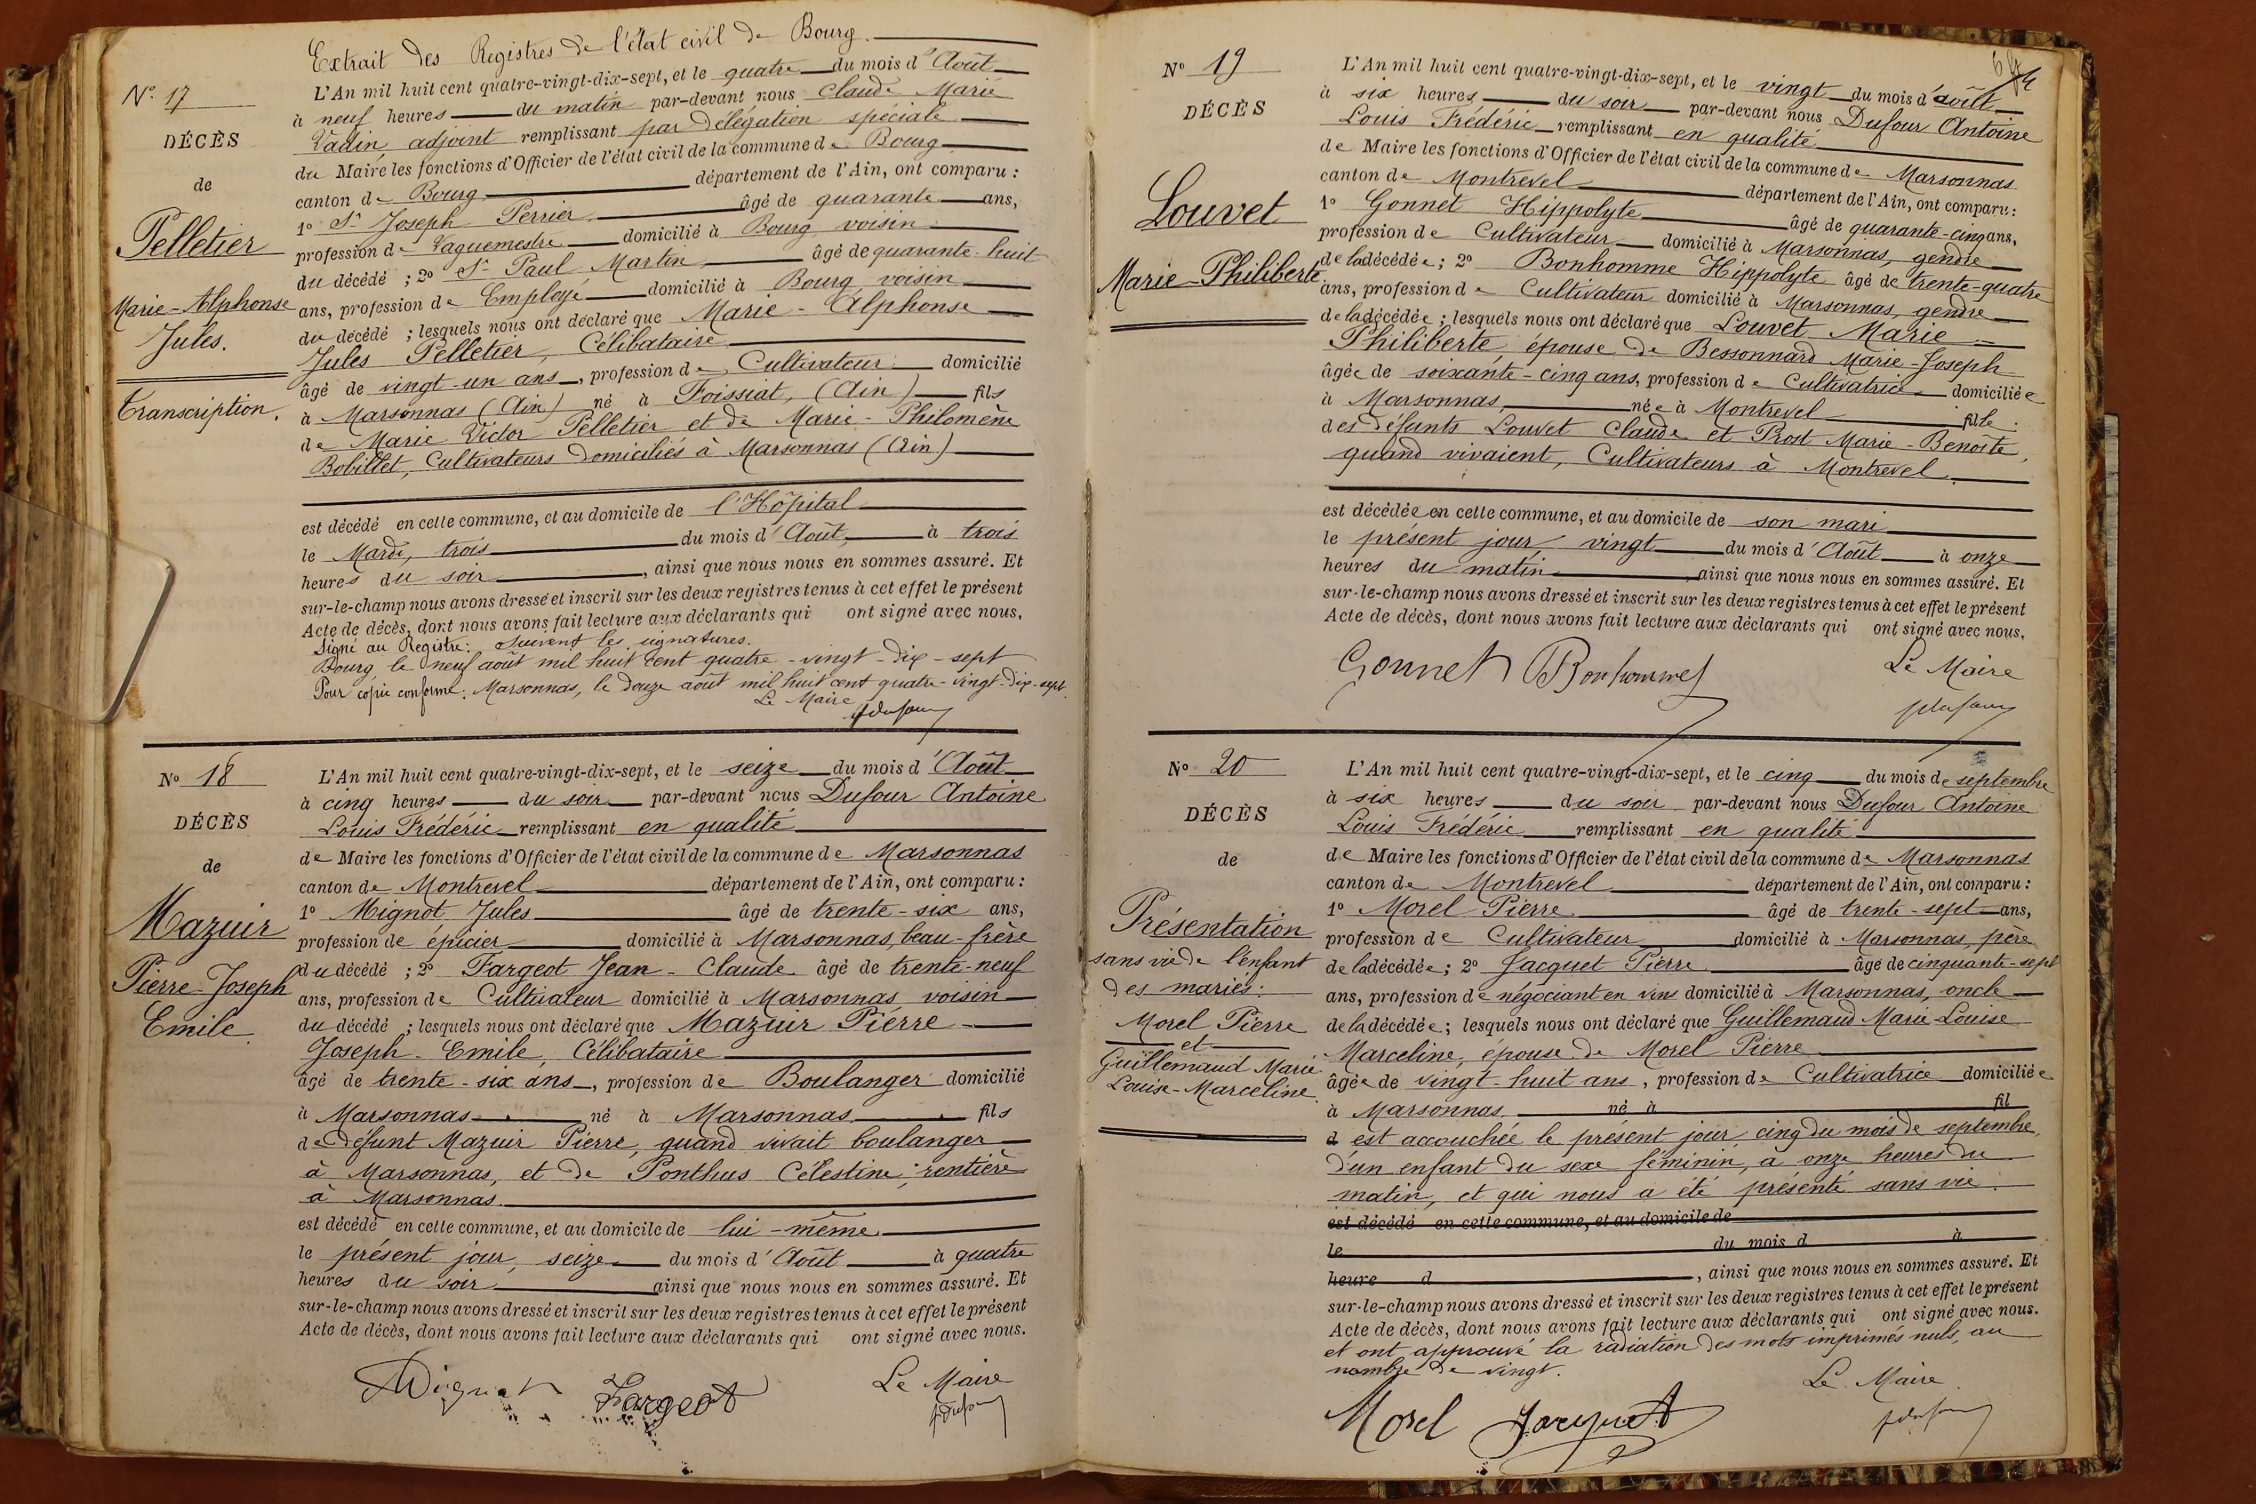 Extrait des Registres de l'état civil de Bourg.
N° 17
DÉCÈS
de
Pelletier
Marie-Alphonse
Jules.
Transcription.
L'An mil huit cent quatre-vingt-dix-sept, et le quatre du mois d'Août
à neuf heures du matin par-devant nous Claude Marie
Vadin adjoint remplissant par délégation spéciale
du Maire les fonctions d'Officier de l'état civil de la commune de Bourg
canton de Bourg département de l'Ain, ont comparu :
1° Sr Joseph Perrier âgé de quarante ans,
profession de Vaguemestre domicilié à Bourg voisin
du décédé ; 2° Sr Paul Martin âgé de quarante-huit
ans, profession de Employé domicilié à Bourg voisin
du décédé ; lesquels nous ont déclaré que Marie-Alphonse
Jules Pelletier, Célibataire
âgé de vingt-un ans, profession de Cultivateur domicilié
à Marsonnas (Ain) né à Foissiat, (Ain) fils
de Marie Victor Pelletier et de Marie-Philomène
Bobillet, Cultivateurs domiciliés à Marsonnas (Ain)
est décédé en cette commune, et au domicile de l'Hôpital
le Mardi, trois du mois d'Août à trois
heures du soir, ainsi que nous nous en sommes assuré. Et
sur-le-champ nous avons dressé et inscrit sur les deux registres tenus à cet effet le présent
Acte de décès, dont nous avons fait lecture aux déclarants qui ont signé avec nous.
Signé au Registre: Suivent les signatures.
Bourg le neuf août mil huit cent quatre-vingt-dix-sept
Pour copie conforme: Marsonnas, le douze août mil huit cent quatre-vingt-dix-sept.
Le Maire
fdufour
N° 18
DÉCÈS
de
Mazuir
Pierre-Joseph
Emile.
L'An mil huit cent quatre-vingt-dix-sept, et le seize du mois d'Août
à cinq heures du soir par-devant nous Dufour Antoine
Louis Frédéric remplissant en qualité
de Maire les fonctions d'Officier de l'état civil de la commune de Marsonnas
canton de Montrevel département de l'Ain, ont comparu :
1° Mignot Jules âgé de trente-six ans,
profession de épicier domicilié à Marsonnas, beau-frère
du décédé ; 2° Fargeot Jean-Claude âgé de trente-neuf
ans, profession de Cultivateur domicilié à Marsonnas voisin
du décédé ; lesquels nous ont déclaré que Mazuir Pierre-
Joseph-Emile, Célibataire
âgé de trente-six ans, profession de Boulanger domicilié
à Marsonnas né à Marsonnas fils
de défunt Mazuir Pierre, quand vivait boulanger
à Marsonnas, et de Ponthus Célestine, rentière
à Marsonnas
est décédé en cette commune, et au domicile de lui-même
le présent jour, seize du mois d'Août à quatre
heures du soir ainsi que nous nous en sommes assuré. Et
sur-le-champ nous avons dressé et inscrit sur les deux registres tenus à cet effet le présent
Acte de décès, dont nous avons fait lecture aux déclarants qui ont signé avec nous.
Mignot Fargeot Le Maire
fdufour
64
N° 19
DÉCÈS
Louvet
Marie-Philiberte
L'An mil huit cent quatre-vingt-dix-sept, et le vingt du mois d'août
à six heures du soir par-devant nous Dufour Antoine
Louis Frédéric remplissant en qualité
de Maire les fonctions d'Officier de l'état civil de la commune de Marsonnas
canton de Montrevel département de l'Ain, ont comparu :
1° Gonnet Hippolyte âgé de quarante-cinq ans,
profession de Cultivateur domicilié à Marsonnas, gendre
de la décédée ; 2° Bonhomme Hippolyte âgé de trente-quatre
ans, profession de Cultivateur domicilié à Marsonnas, gendre
de la décédée ; lesquels nous ont déclaré que Louvet Marie-
Philiberte, épouse de Bessonnard Marie-Joseph
âgée de soixante-cinq ans, profession de Cultivatrice domiciliée
à Marsonnas, née à Montrevel fille
des défunts Louvet Claude et Prost Marie-Benoîte,
quand vivaient, Cultivateurs à Montrevel.
est décédée en cette commune, et au domicile de son mari
le présent jour vingt du mois d'Août à onze
heures du matin ainsi que nous nous en sommes assuré. Et
sur-le-champ nous avons dressé et inscrit sur les deux registres tenus à cet effet le présent
Acte de décès, dont nous avons fait lecture aux déclarants qui ont signé avec nous.
Gonnet Bonhomme Le Maire
fdufour
N° 20
DÉCÈS
de
Présentation
sans vie de l'enfant
des mariés:
Morel Pierre
et
Guillemaud Marie
Louise-Marceline
L'An mil huit cent quatre-vingt-dix-sept, et le cinq du mois de septembre
à six heures du soir par-devant nous Dufour Antoine
Louis Frédéric remplissant en qualité
de Maire les fonctions d'Officier de l'état civil de la commune de Marsonnas
canton de Montrevel département de l'Ain, ont comparu :
1° Morel Pierre âgé de trente-sept ans,
profession de Cultivateur domicilié à Marsonnas, père
de la décédée ; 2° Jacquet Pierre âgé de cinquante-sept
ans, profession de négociant en vins domicilié à Marsonnas, oncle
de la décédée ; lesquels nous ont déclaré que Guillemaud Marie Louise
Marceline, épouse de Morel Pierre
âgée de vingt-huit ans, profession de Cultivatrice domiciliée
à Marsonnas né à fil
d est accouchée le présent jour, cinq du mois de septembre,
d'un enfant du sexe féminin, à onze heures du
matin, et qui nous a été présenté sans vie.
est décédé en cette commune, et au domicile de
le du mois d à
heure d , ainsi que nous nous en sommes assuré. Et
sur-le-champ nous avons dressé et inscrit sur les deux registres tenus à cet effet le présent
Acte de décès, dont nous avons fait lecture aux déclarants qui ont signé avec nous.
et ont approuvé la radiation des mots imprimés nuls, au
nombre de vingt.
Le Maire
Morel Jacquet fdufour